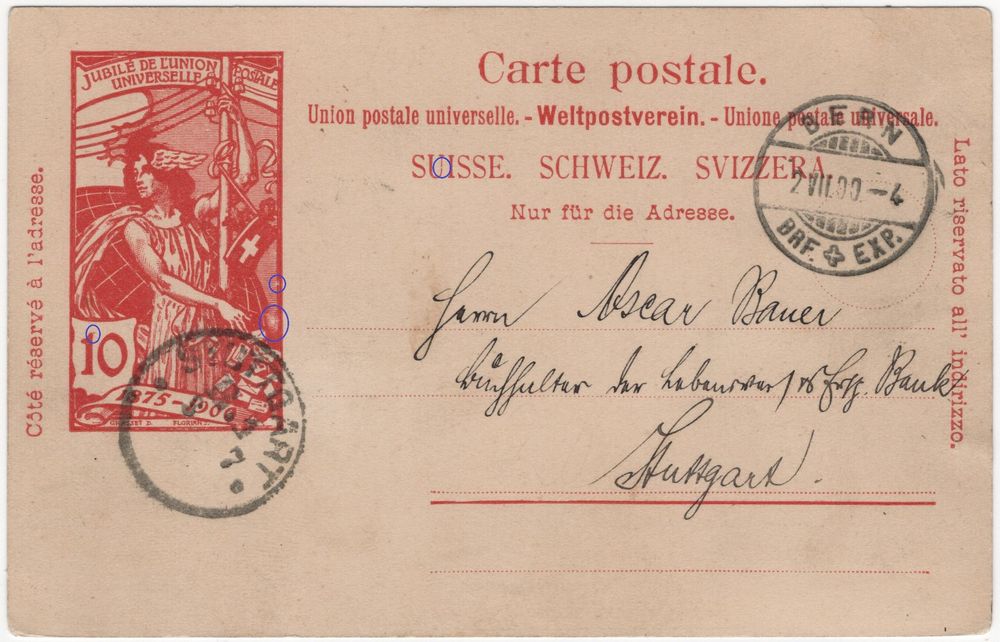 JUBILÉ DE L'UNION POSTALE
UNIVERSELLE
10
1875-1900
GRASSET D. FLORIAN
Côté réservé à l'adresse.
Carte postale.
Union postale universelle. - Weltpostverein. - Unione postale universale.
SUISSE. SCHWEIZ. SVIZZERA.
Nur für die Adresse.
Lato riservato all' indirizzo.
BERN
2 VII.00.-4
BRF. EXP.
Herrn Oscar Bauer
Buchhalter der Lebensvers's Ersp. Bank
Stuttgart.
STUTTGART